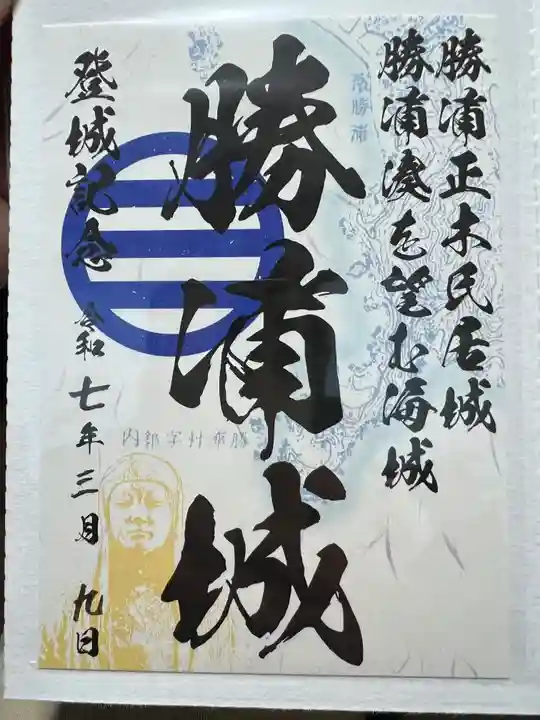 勝浦正木氏居城
勝浦湊を望む海城
勝浦城
登城記念 令和七年三月九日
勝浦
内部字村浦勝